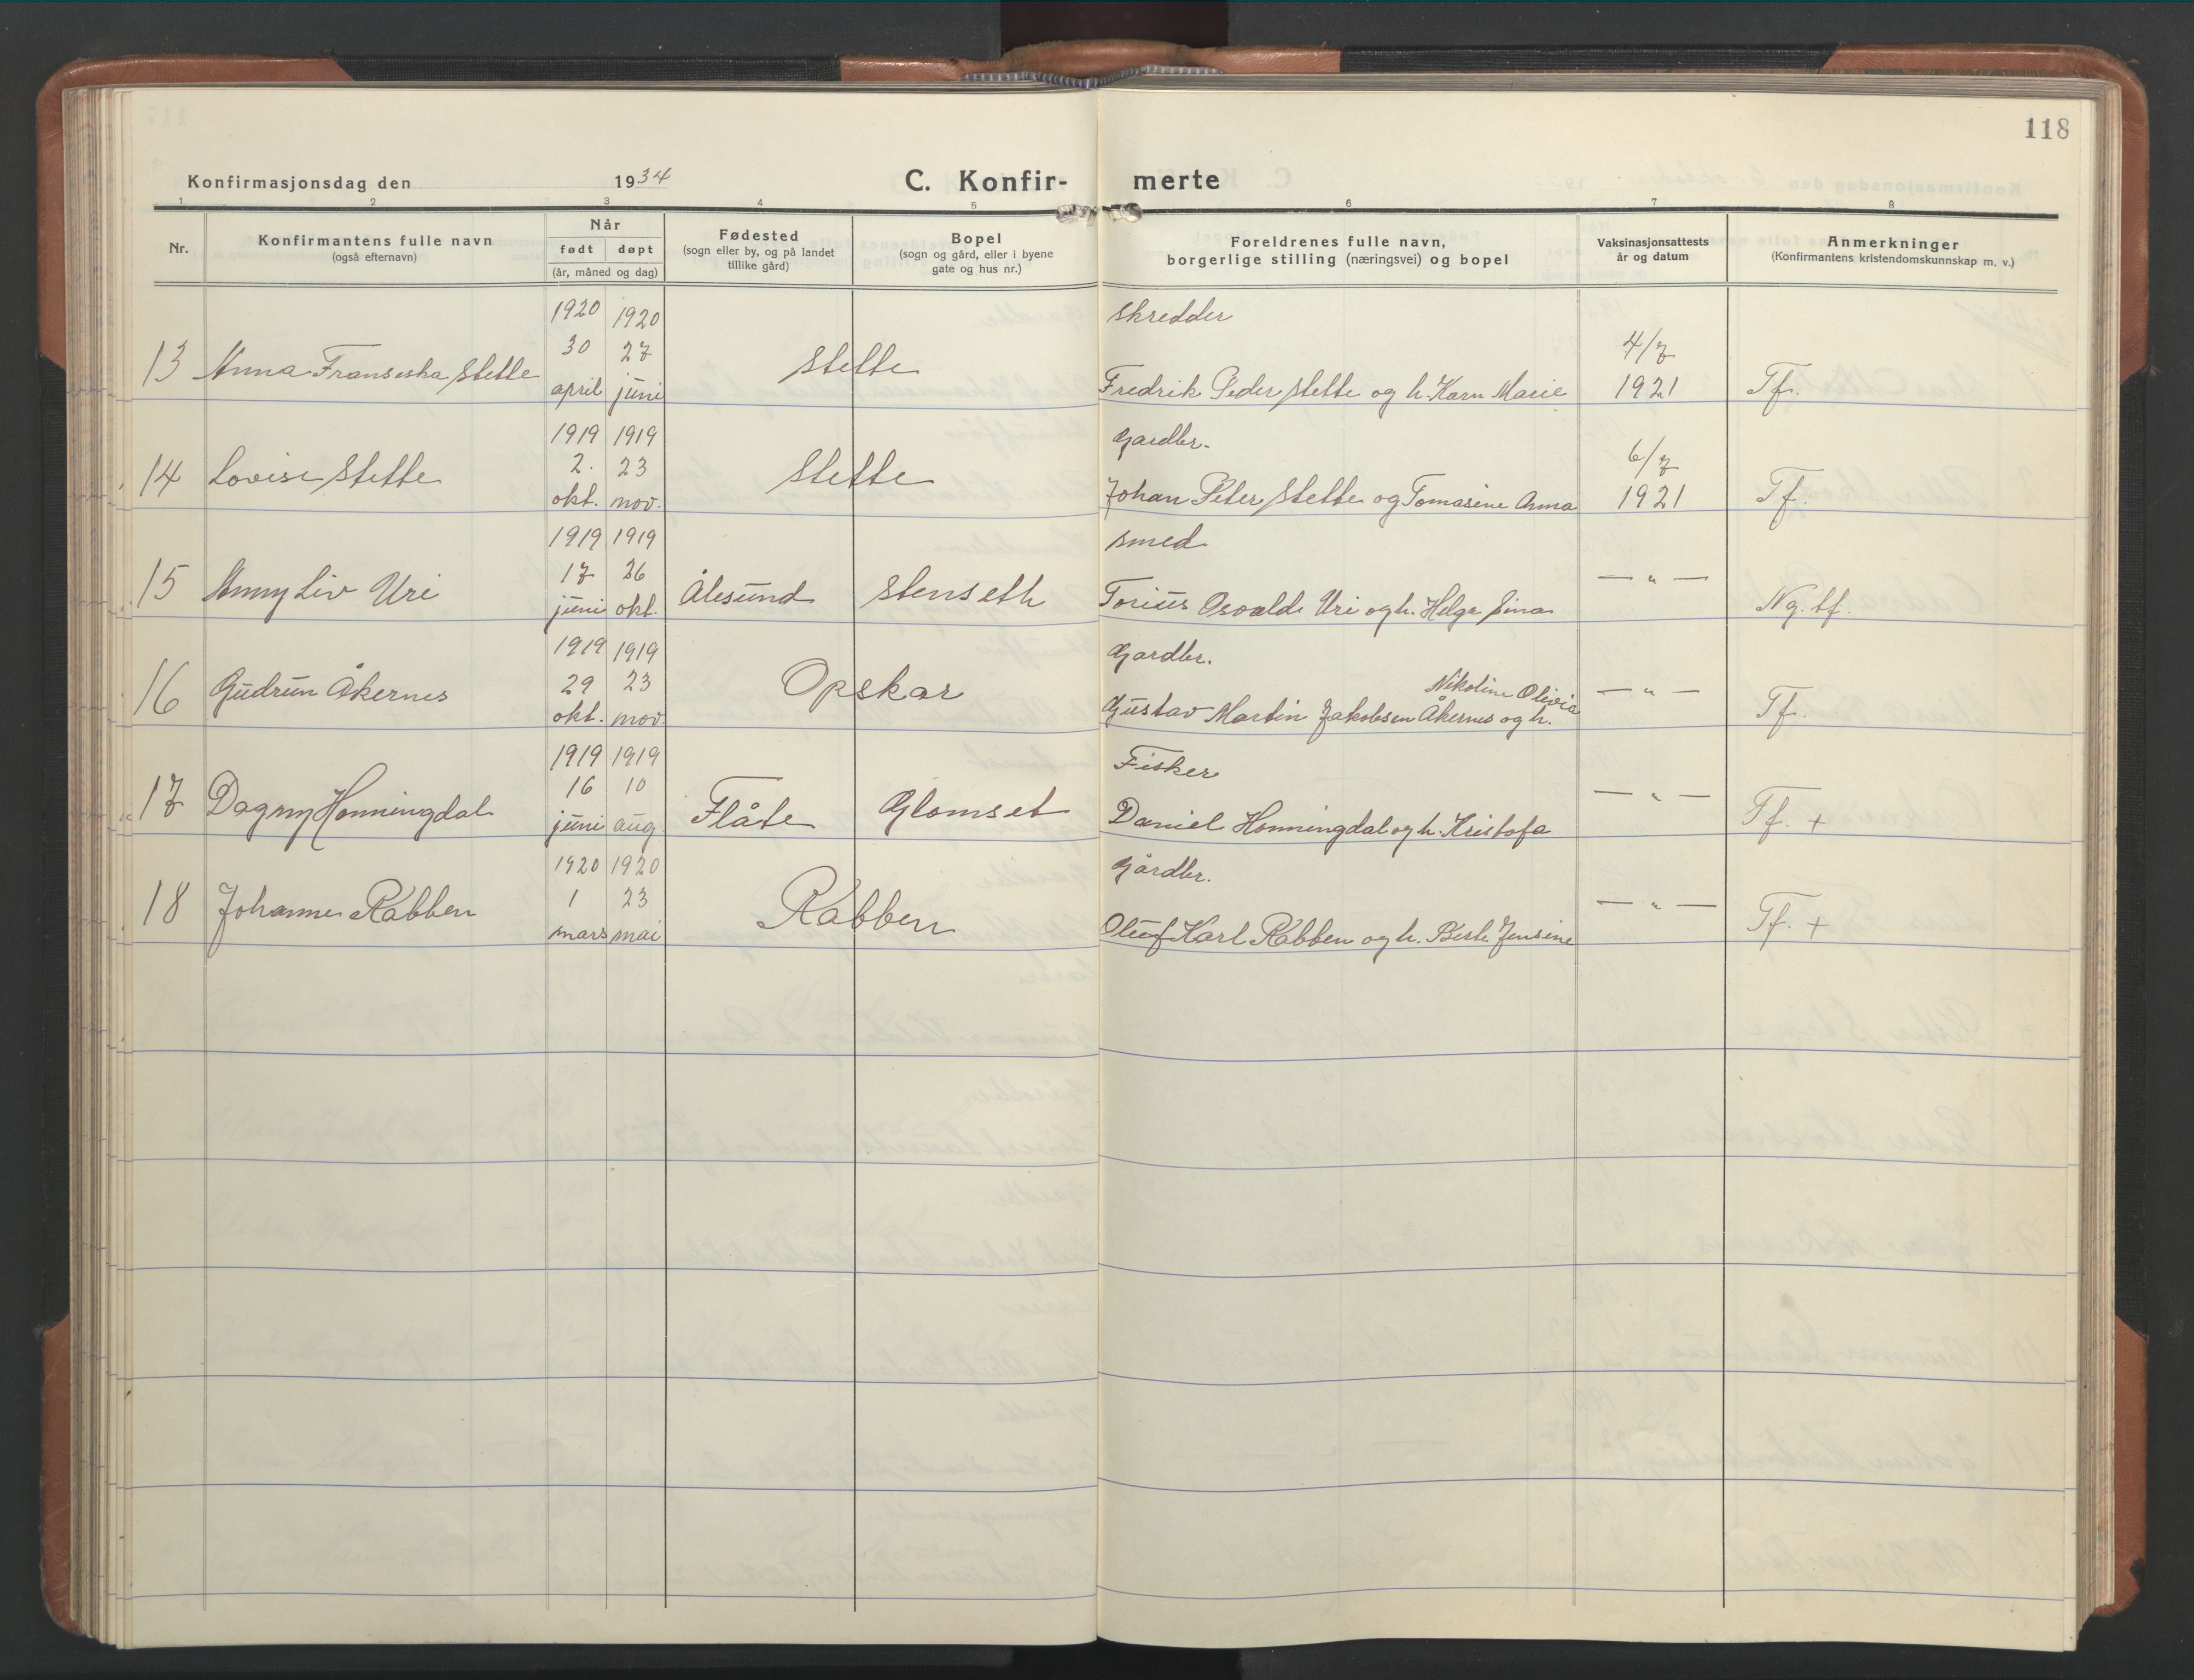 118
Konfirmasjonsdag den 1934 C. Konfir- merte
1 2 3 4 5 6 7 8
Nr. Konfirmantens fulle navn (også efternavn) Når født døpt (år, måned og dag) Fødested (sogn eller by, og på landet tillike gård) Bopel (sogn og gård, eller i byene gate og hus nr.) Foreldrenes fulle navn, borgerlige stilling (næringsvei) og bopel Vaksinasjonsattests år og datum Anmerkninger (Konfirmantens kristendomskunnskap m. v.)
1920 1920 skredder
30 27 4/7
13 Anna Fransiska Stette april juni Stette Fredrik Peder Stette og h. Karn Marie 1921 Tf.
1919 1919 Gardbr.
2. 23 6/7
14 Lovise Stette okt. nov. Stette Johan Peter Stette og Tomasine Anna 1921 Tf.
1919 1919 smed
17 26 — " —
15 Anny Liv Uri juni okt. Ålesund Stenseth Torius Osvald Uri og h. Helga Sina Ng. tf.
1919 1919 Gardbr.
29 23 Nikoline Olivia — " —
16 Gudrun Åkernes okt. nov. Opskar Gustav Martin Jakobsen Åkernes og h. Tf.
1919 1919 Fisker
16 10 — " —
17 Dagny Honningdal juni aug Flåte Glomset Daniel Honningdal og h. Kristofa Tf. +
1920 1920 Gårdbr.
1 23 — " —
18 Johanne Rabben mars mai Rabben Oluf Karl Rabben og h. Berte Jensine Tf. +